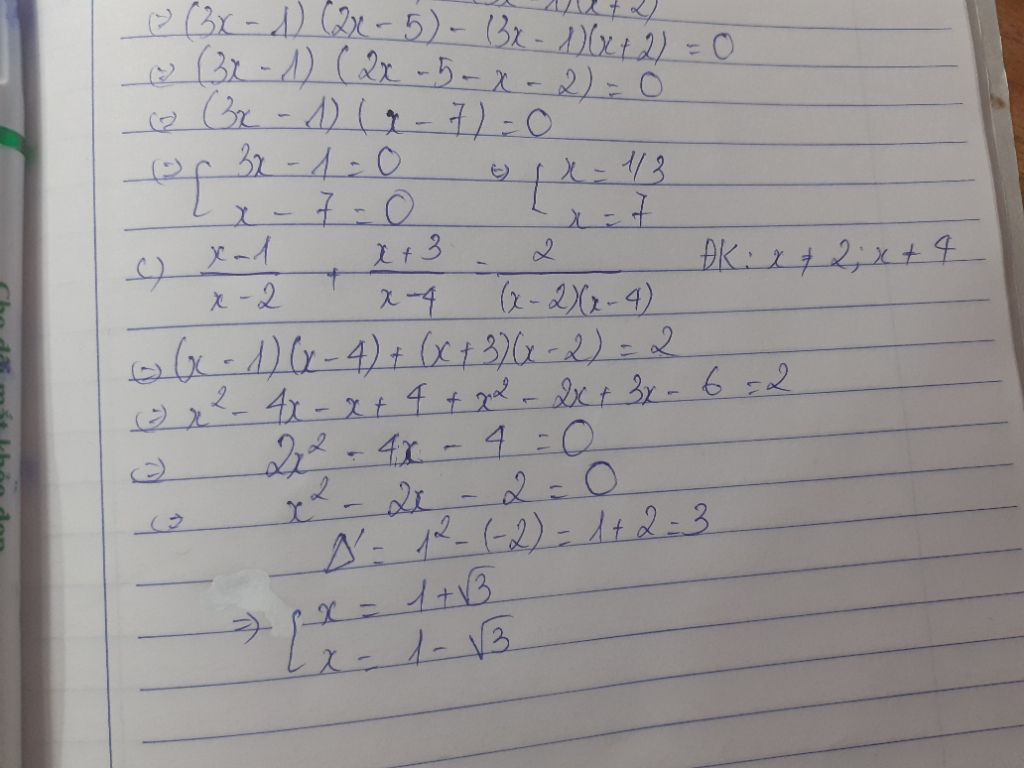 (x+2)
<=> (3x - 1) (2x - 5) - (3x - 1)(x + 2) = 0
<=> (3x - 1) (2x - 5 - x - 2) = 0
<=> (3x - 1) (x - 7) = 0
<=> [ 3x - 1 = 0 <=> [ x = 1/3
x - 7 = 0 x = 7
c) (x-1)/(x-2) + (x+3)/(x-4) = 2/((x-2)(x-4)) ĐK: x ≠ 2; x ≠ 4
<=> (x - 1)(x - 4) + (x + 3)(x - 2) = 2
<=> x² - 4x - x + 4 + x² - 2x + 3x - 6 = 2
<=> 2x² - 4x - 4 = 0
<=> x² - 2x - 2 = 0
Δ' = 1² - (-2) = 1 + 2 = 3
=> [ x = 1 + √3
x = 1 - √3